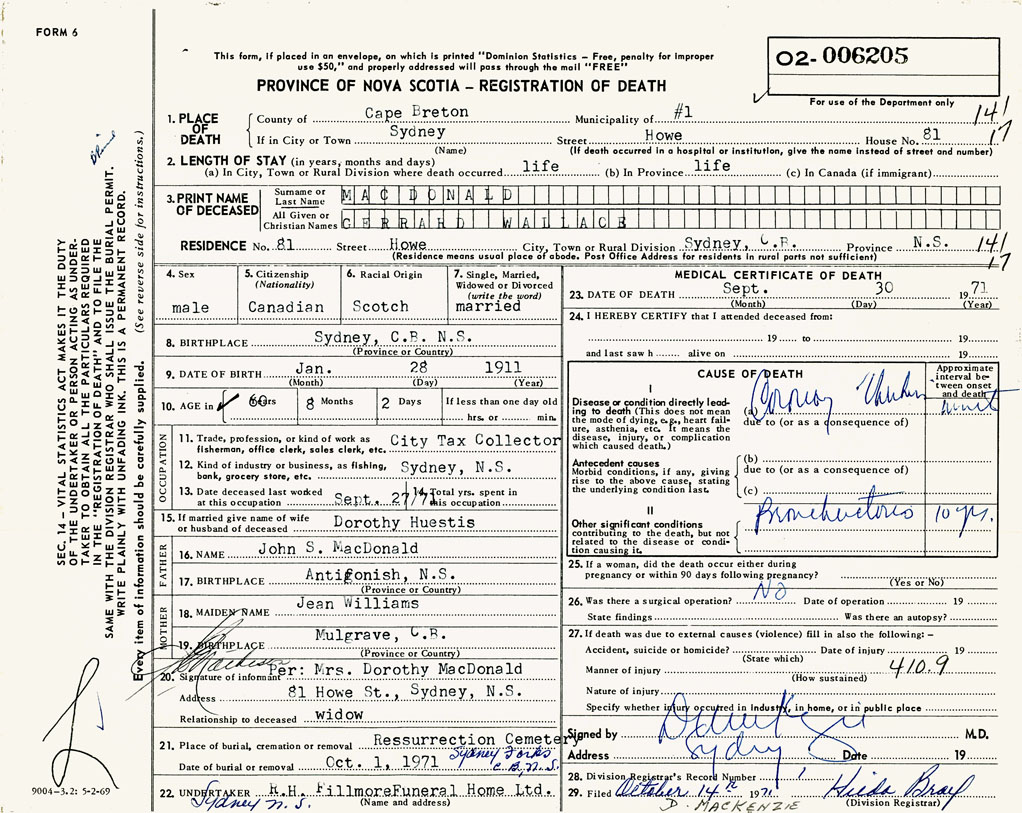 FORM 6
This form, if placed in an envelope, on which is printed "Dominion Statistics – Free, penalty for improper
use $50," and properly addressed will pass through the mail "FREE"
02-006205
PROVINCE OF NOVA SCOTIA – REGISTRATION OF DEATH
For use of the Department only
1. PLACE OF DEATH
County of Cape Breton Municipality of #1 141
If in City or Town Sydney Street Howe House No. 81 17
(Name) (If death occurred in a hospital or institution, give the name instead of street and number)
2. LENGTH OF STAY (in years, months and days)
(a) In City, Town or Rural Division where death occurred life (b) In Province life (c) In Canada (if immigrant)
3. PRINT NAME OF DECEASED
Surname or Last Name MAC DONALD
All Given or Christian Names GERRARD WALLACE
RESIDENCE No. 81 Street Howe City, Town or Rural Division Sydney, C.B. Province N.S. 141
(Residence means usual place of abode. Post Office Address for residents in rural parts not sufficient) 17
4. Sex male
5. Citizenship (Nationality) Canadian
6. Racial Origin Scotch
7. Single, Married, Widowed or Divorced (write the word) married
8. BIRTHPLACE Sydney, C.B. N.S.
(Province or Country)
9. DATE OF BIRTH Jan. 28 1911
(Month) (Day) (Year)
10. AGE in 60 Yrs 8 Months 2 Days If less than one day old
hrs. or min.
OCCUPATION
11. Trade, profession, or kind of work as fisherman, office clerk, sales clerk, etc. City Tax Collector
12. Kind of industry or business, as fishing, bank, grocery store, etc. Sydney, N.S.
13. Date deceased last worked at this occupation Sept. 27/71
14. Total yrs. spent in this occupation
15. If married give name of wife or husband of deceased Dorothy Huestis
FATHER
16. NAME John S. MacDonald
17. BIRTHPLACE Antigonish, N.S.
(Province or Country)
MOTHER
18. MAIDEN NAME Jean Williams
19. BIRTHPLACE Mulgrave, C.B.
(Province or Country)
20. Signature of informant Per: Mrs. Dorothy MacDonald
Address 81 Howe St., Sydney, N.S.
Relationship to deceased widow
21. Place of burial, cremation or removal Ressurrection Cemetery
Sydney Forks
Date of burial or removal Oct. 1, 1971 C.B., N.S.
22. UNDERTAKER R.H. FillmoreFuneral Home Ltd.
Sydney N.S. (Name and address)
MEDICAL CERTIFICATE OF DEATH
23. DATE OF DEATH Sept. 30 1971
(Month) (Day) (Year)
24. I HEREBY CERTIFY that I attended deceased from:
19 to 19
and last saw h alive on 19
CAUSE OF DEATH
Approximate interval between onset and death
I
Disease or condition directly leading to death (This does not mean the mode of dying, e.g., heart failure, asthenia, etc. It means the disease, injury, or complication which caused death.)
(a) Coronary
due to (or as a consequence of)
Antecedent causes
Morbid conditions, if any, giving rise to the above cause, stating the underlying condition last.
(b)
due to (or as a consequence of)
(c)
II
Other significant conditions contributing to the death, but not related to the disease or condition causing it.
10 yrs.
25. If a woman, did the death occur either during
pregnancy or within 90 days following pregnancy?
(Yes or No)
26. Was there a surgical operation? No Date of operation 19
State findings Was there an autopsy?
27. If death was due to external causes (violence) fill in also the following: –
Accident, suicide or homicide? Date of injury 19
(State which)
Manner of injury 410.9
(How sustained)
Nature of injury
Specify whether injury occurred in Industry, in home, or in public place
Signed by M.D.
Address Sydney Date 19
28. Division Registrar's Record Number
29. Filed October 14th 1971 Hilda Bray
D. MACKENZIE (Division Registrar)
SEC. 14 – VITAL STATISTICS ACT MAKES IT THE DUTY
OF THE UNDERTAKER OR PERSON ACTING AS UNDERTAKER TO OBTAIN ALL THE PARTICULARS REQUIRED
IN THE "REGISTRATION OF DEATH" AND TO FILE THE
SAME WITH THE DIVISION REGISTRAR WHO SHALL ISSUE THE BURIAL PERMIT.
WRITE PLAINLY WITH UNFADING INK. THIS IS A PERMANENT RECORD.
Every item of information should be carefully supplied. (See reverse side for instructions.)
9004-3.2: 5-2-69